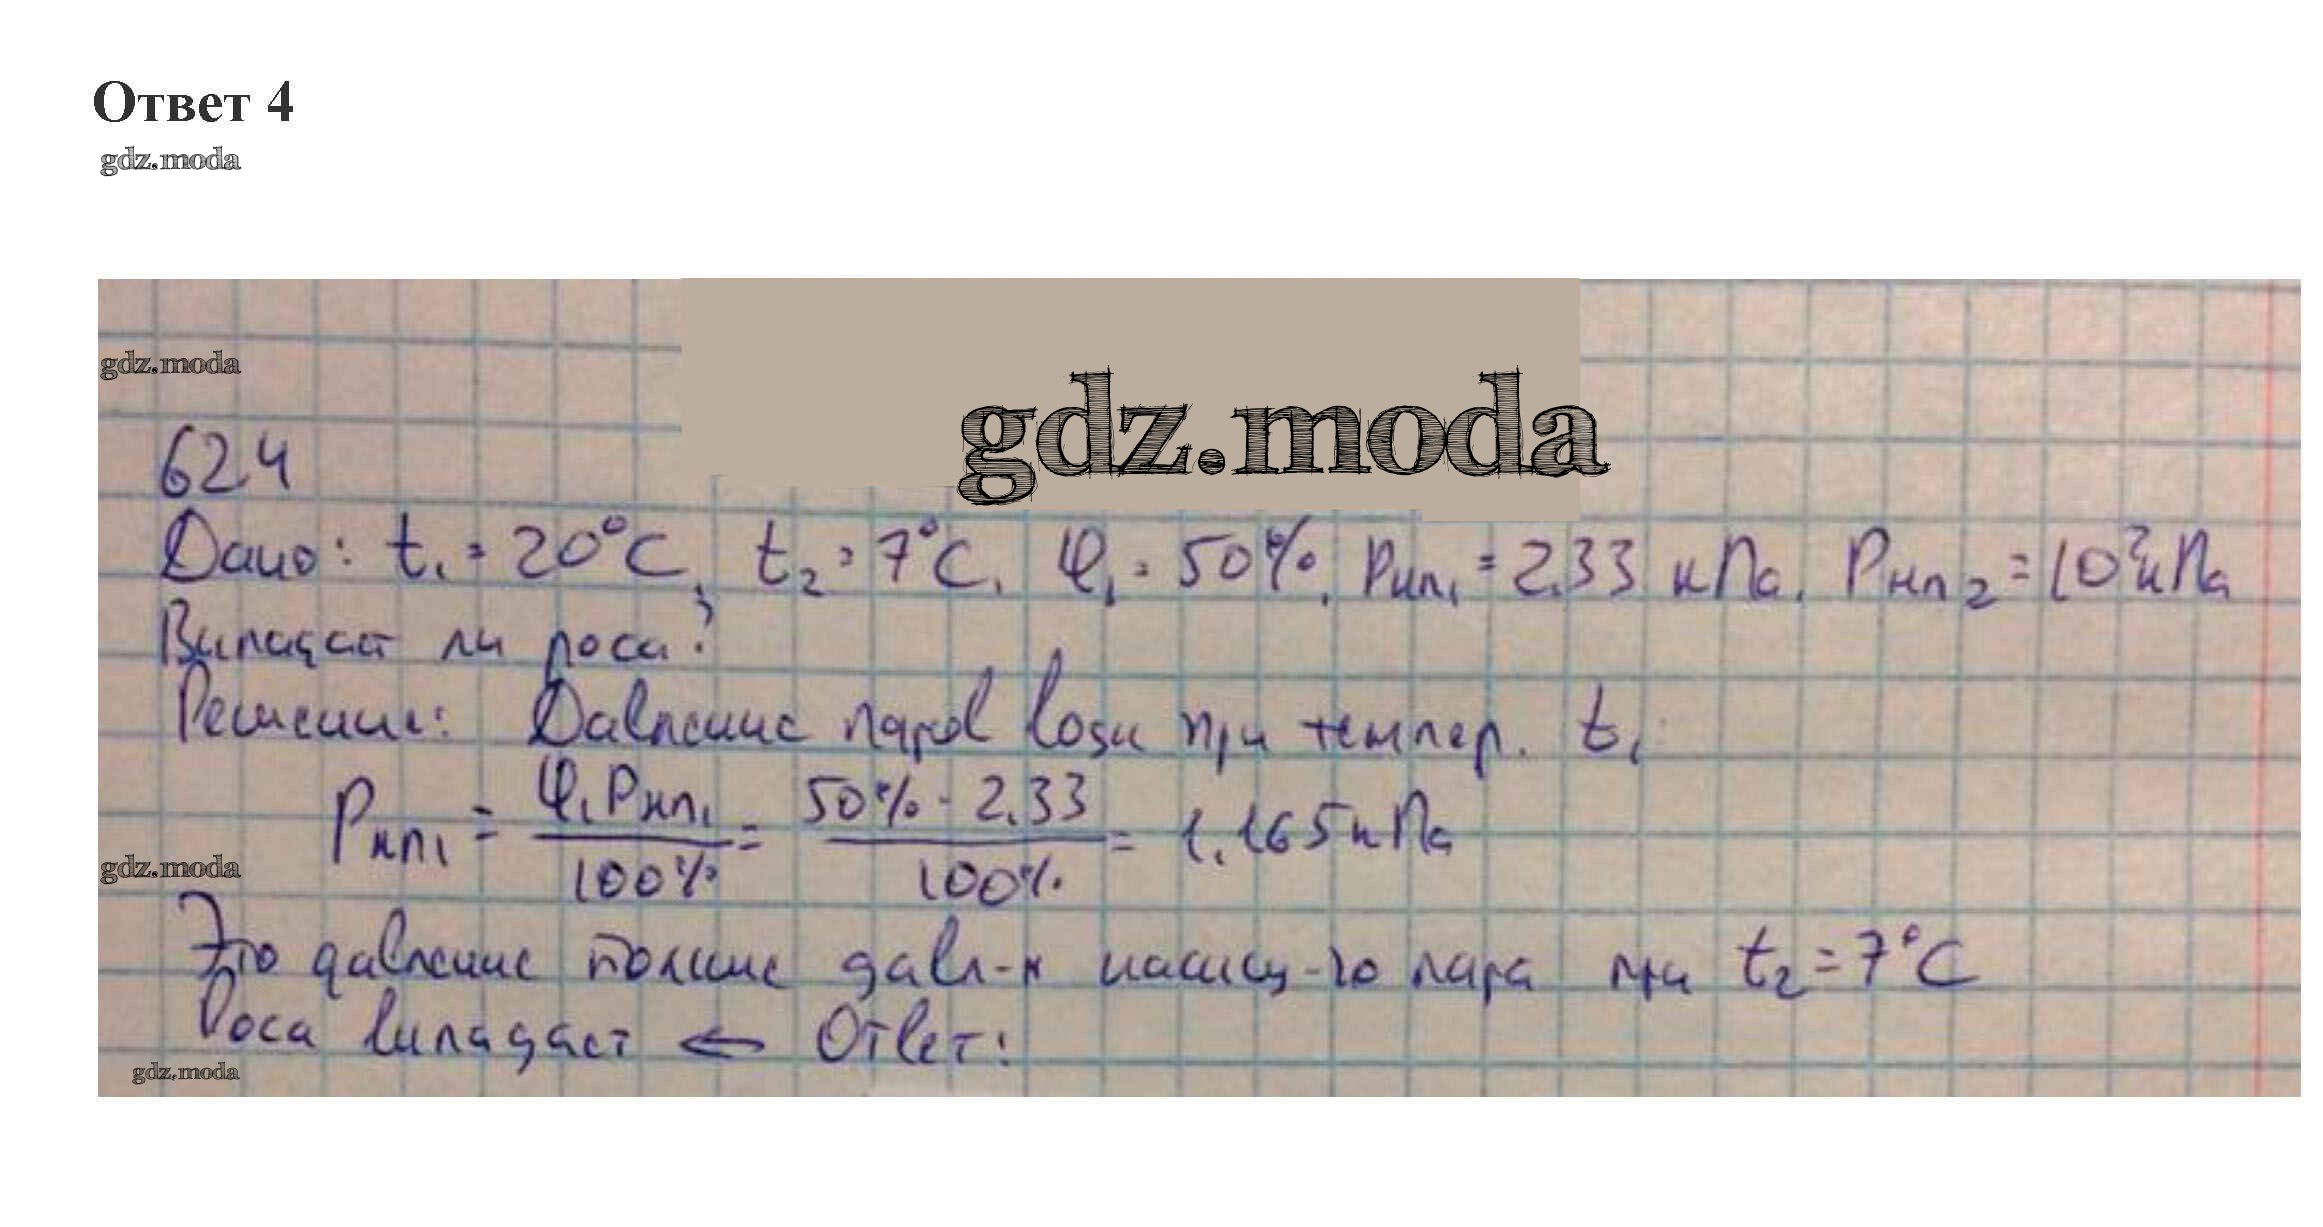 Ответ 4
gdz.moda
gdz.moda
gdz.moda
624
Дано: t₁ = 20°C, t₂ = 7°C, φ₁ = 50%, Pнп₁ = 2,33 кПа, Pнп₂ = 10² кПа
Выпадает ли роса?
Решение: Давление паров воды при темпер. t₁
Pнп₁ = φ₁Pнп₁ / 100% = 50% · 2,33 / 100% = 1,165 кПа
gdz.moda
Это давление больше давл-я насыщ-го пара при t₂ = 7°C
Роса выпадает ← Ответ:
gdz.moda